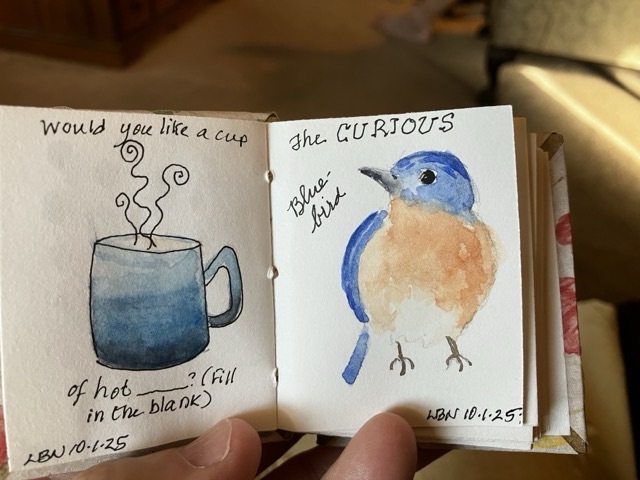 Would you like a cup
of hot ____? (Fill
in the blank)
LBN 10.1.25
The CURIOUS
Blue-
bird
LBN 10.1.25.